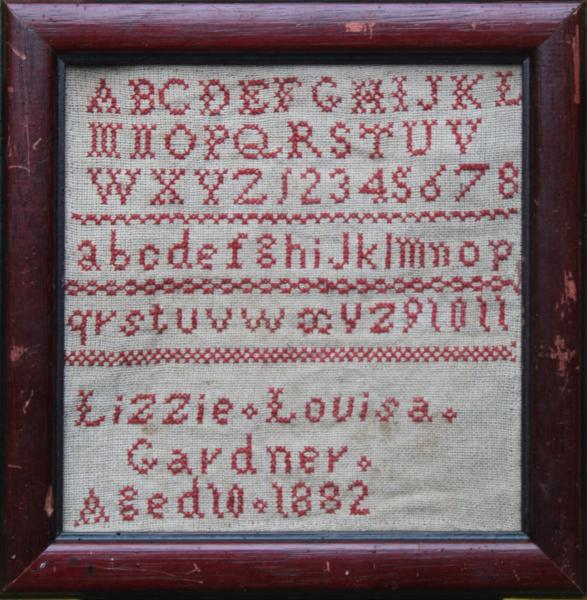 ABCDEFGHIJKL
MNOPQRSTUV
WXYZ12345678
abcdefghijklmnop
qrstuvwxyz91011
Lizzie. Louisa.
Gardner.
Aged 10. 1882